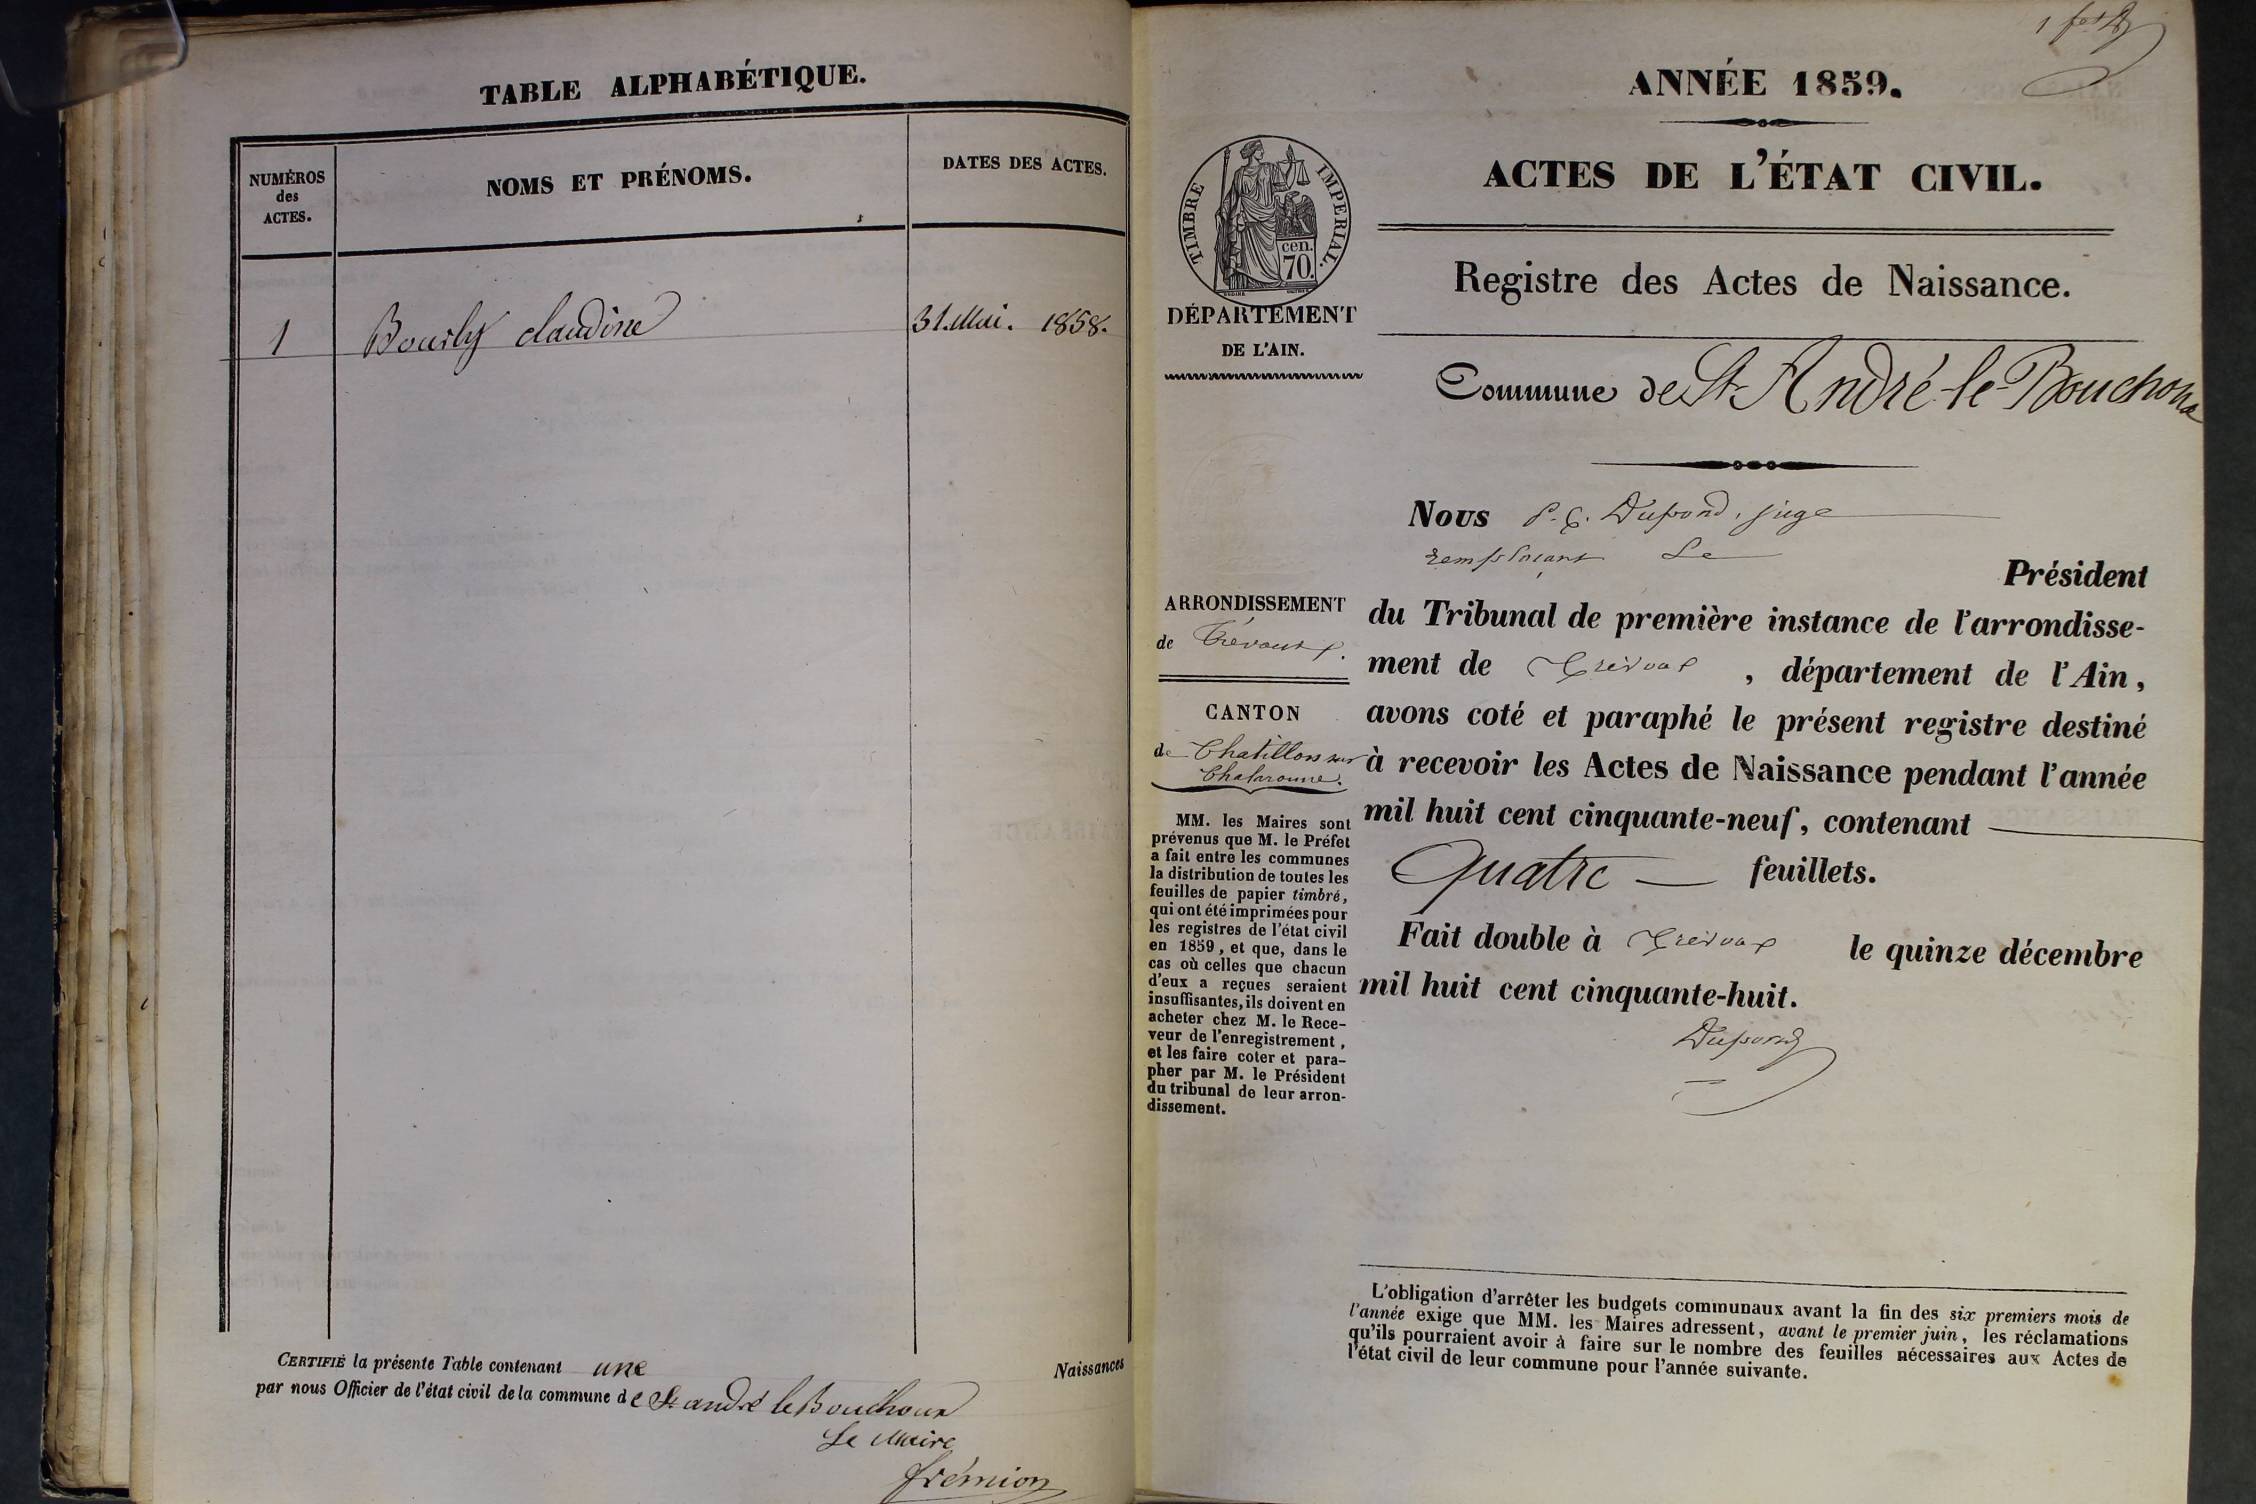 TABLE ALPHABÉTIQUE.
NUMÉROS
des
ACTES.
NOMS ET PRÉNOMS.
DATES DES ACTES.
1 Bourly claudine 31. Mai. 1858.
CERTIFIÉ la présente Table contenant une Naissances
par nous Officier de l'état civil de la commune de St andré le Bouchoux
Le Maire
frémion
ANNÉE 1859.
ACTES DE L'ÉTAT CIVIL.
TIMBRE IMPERIAL.
cen.
70.
DÉPARTEMENT
DE L'AIN.
Registre des Actes de Naissance.
Commune de St André-le-Bouchoux
ARRONDISSEMENT
de Trévoux.
CANTON
de Chatillon sur
Chalaronne.
MM. les Maires sont
prévenus que M. le Préfet
a fait entre les communes
la distribution de toutes les
feuilles de papier timbré,
qui ont été imprimées pour
les registres de l'état civil
en 1859, et que, dans le
cas où celles que chacun
d'eux a reçues seraient
insuffisantes, ils doivent en
acheter chez M. le Rece-
veur de l'enregistrement,
et les faire coter et para-
pher par M. le Président
du tribunal de leur arron-
dissement.
Nous Dupond, juge
remplaçant Le
Président
du Tribunal de première instance de l'arrondisse-
ment de Trévoux, département de l'Ain,
avons coté et paraphé le présent registre destiné
à recevoir les Actes de Naissance pendant l'année
mil huit cent cinquante-neuf, contenant
Quatre feuillets.
Fait double à Trévoux le quinze décembre
mil huit cent cinquante-huit.
Dupond
L'obligation d'arrêter les budgets communaux avant la fin des six premiers mois de
l'année exige que MM. les Maires adressent, avant le premier juin, les réclamations
qu'ils pourraient avoir à faire sur le nombre des feuilles nécessaires aux Actes de
l'état civil de leur commune pour l'année suivante.